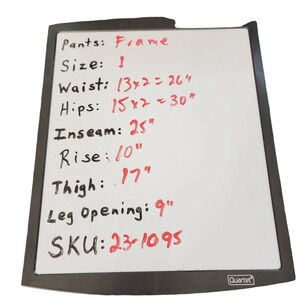 Pants: Frame
Size: 1
Waist: 13x2=26"
Hips: 15x2=30"
Inseam: 25"
Rise: 10"
Thigh: 17"
Leg Opening: 9"
SKU: 23-1095
Quartet